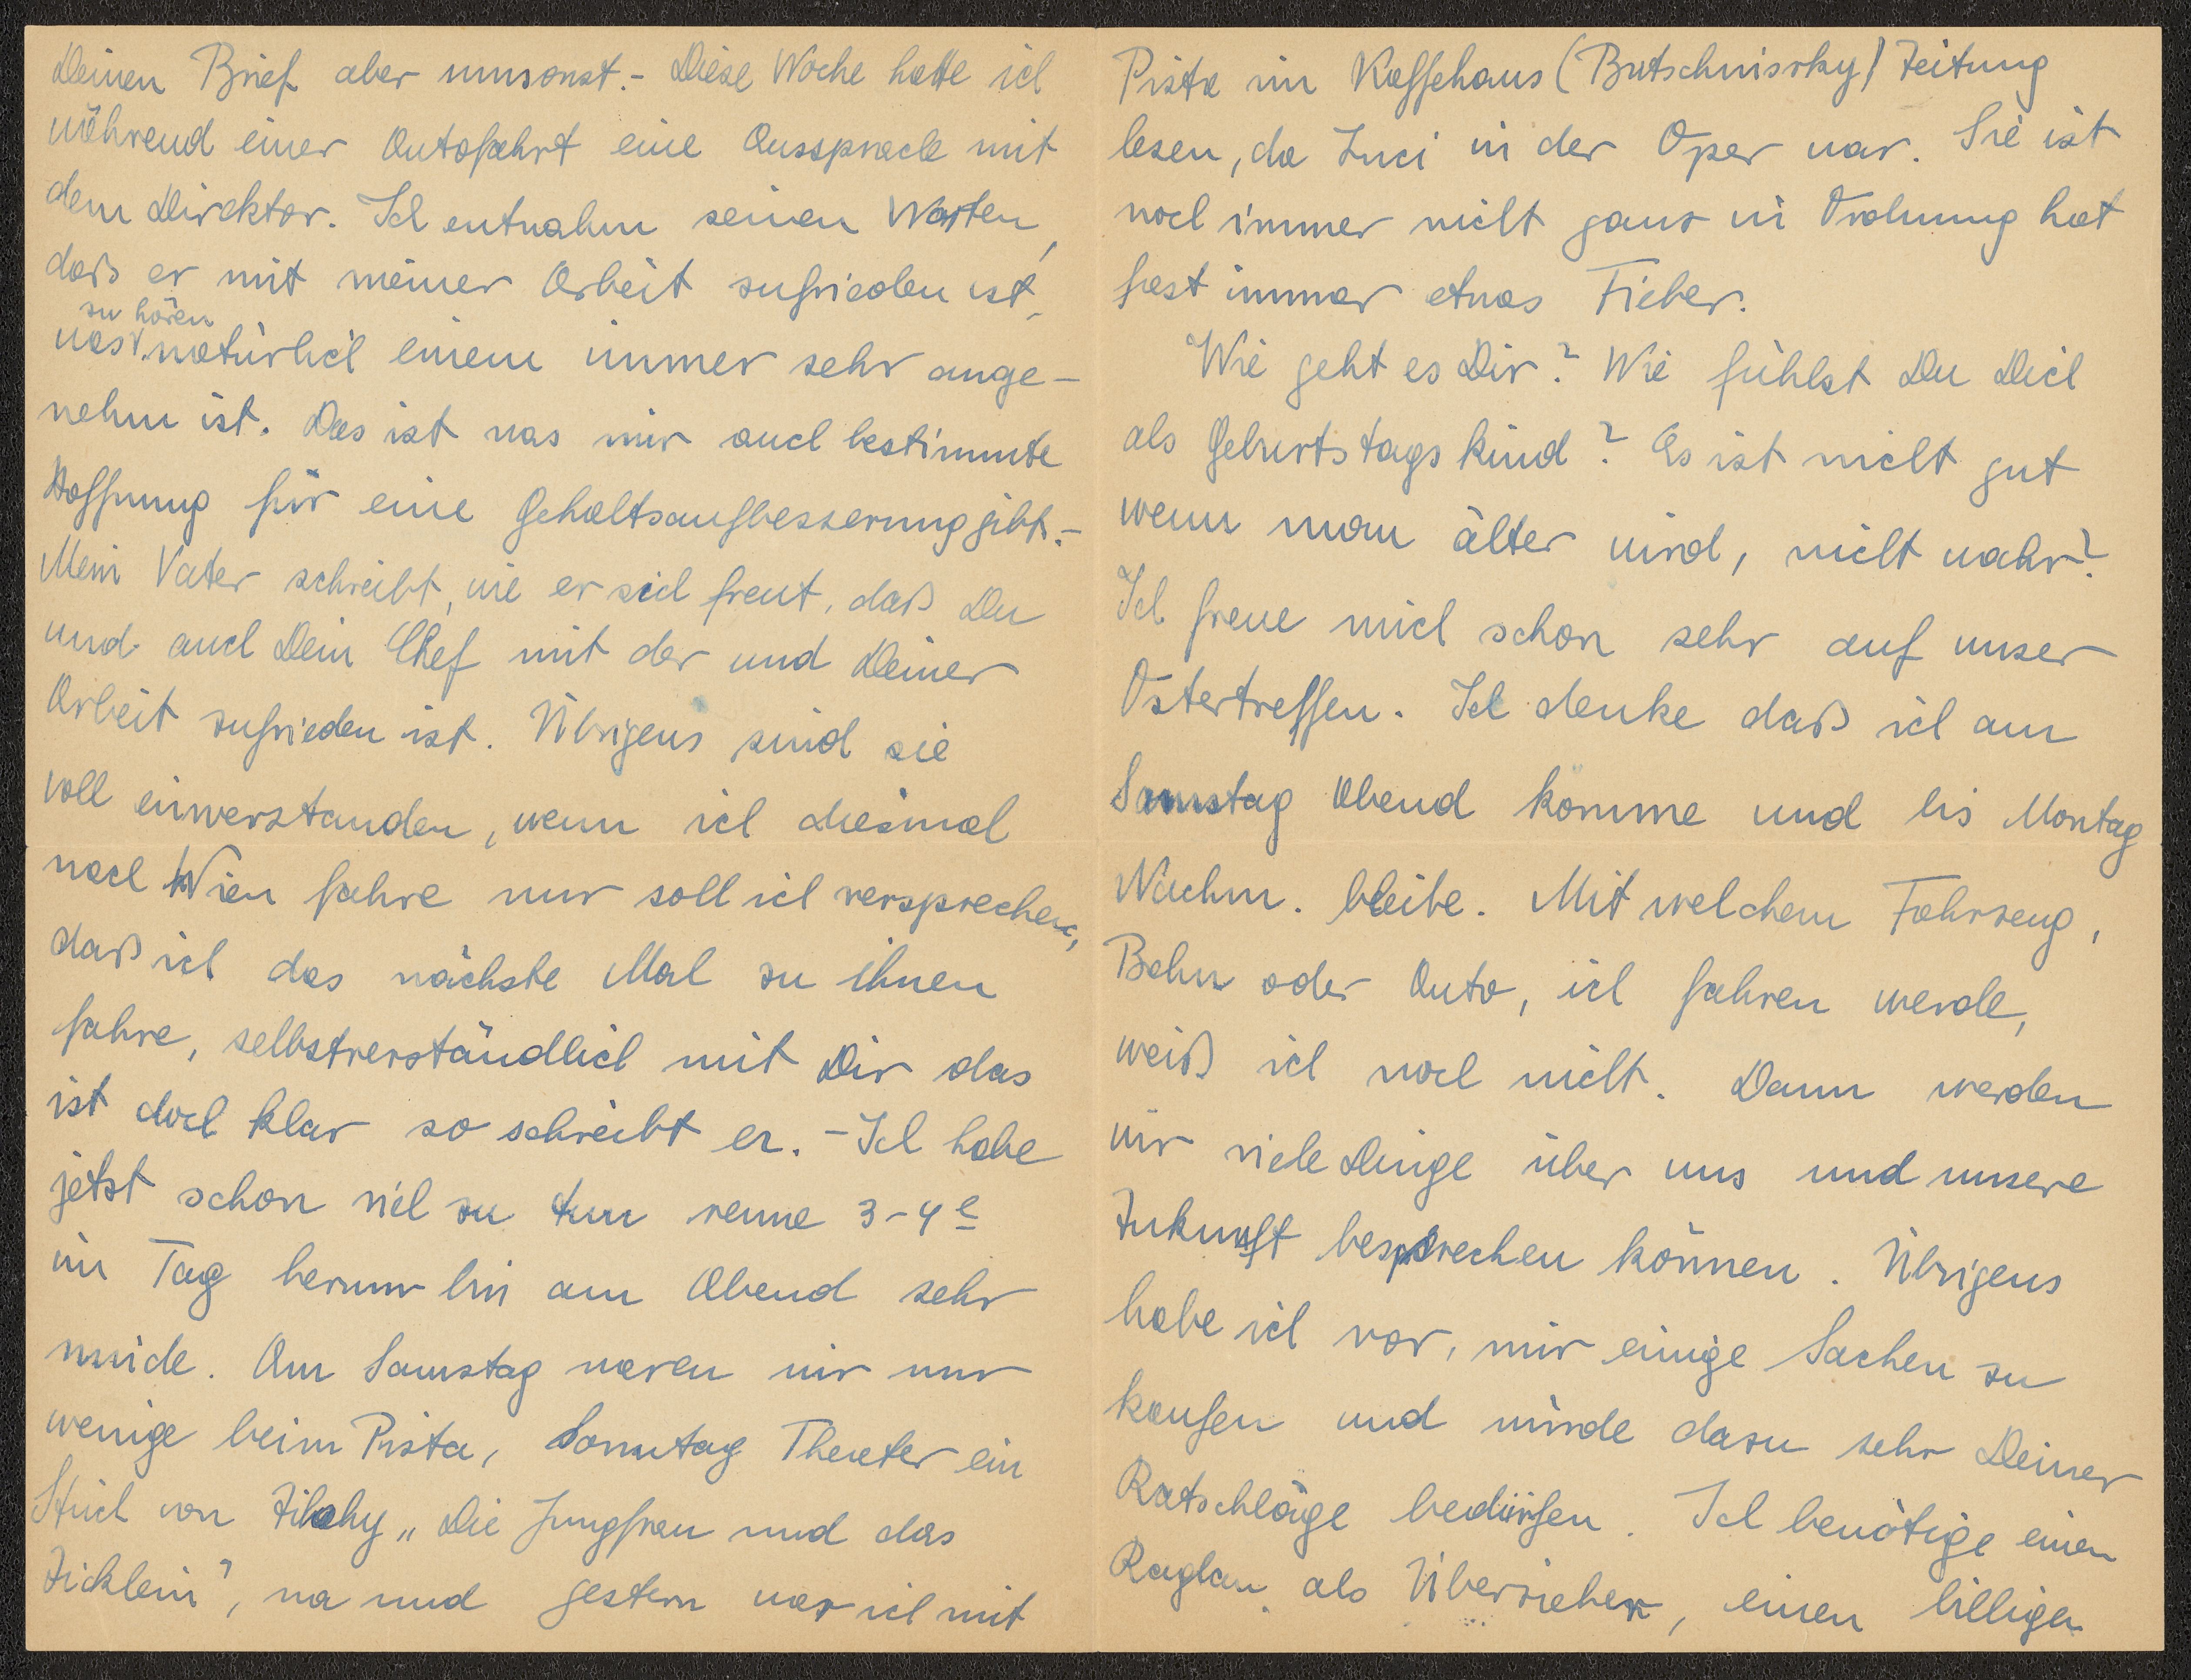 Deinen Brief aber umsonst.- Diese Woche hatte ich
während einer Autofahrt eine Aussprache mit
dem Direktor. Ich entnahm seinen Worten,
daß er mit meiner Arbeit zufrieden ist,
zu hören
was natürlich einem immer sehr ange-
nehm ist. Das ist was mir auch bestimmte
Hoffnung für eine Gehaltsaufbesserung gibt.-
Mein Vater schreibt, wie er sich freut, daß Du
und auch Dein Chef mit der und Deiner
Arbeit zufrieden ist. Übrigens sind sie
voll einverstanden, wenn ich diesmal
nach Wien fahre nur soll ich versprechen,
daß ich das nächste Mal zu ihnen
fahre, selbstverständlich mit Dir das
ist doch klar so schreibt er. - Ich habe
jetzt schon viel zu tun renne 3-4
im Tag herum bin am Abend sehr
müde. Am Samstag waren wir nur
wenige beim Pista, Sonntag Theater ein
Stück von Zilahy „Die Jungfrau und das
Zicklein", na und gestern war ich mit
Pista im Kaffehaus (Butschnisrky) Zeitung
lesen, da Luci in der Oper war. Sie ist
noch immer nicht ganz in Ordnung hat
fast immer etwas Fieber.
Wie geht es Dir? Wie fühlst Du Dich
als Geburtstagskind? Es ist nicht gut
wenn man älter wird, nicht wahr?
Ich freue mich schon sehr auf unser
Ostertreffen. Ich denke daß ich am
Samstag Abend komme und bis Montag
Nachm. bleibe. Mit welchem Fahrzeug,
Bahn oder Auto, ich fahren werde,
weiß ich noch nicht. Dann werden
wir viele Dinge über uns und unsere
Zukunft besprechen können. Übrigens
habe ich vor, mir einige Sachen zu
kaufen und würde dazu sehr Deiner
Ratschläge bedürfen. Ich benötige einen
Raglan als Überzieher, einen billigen